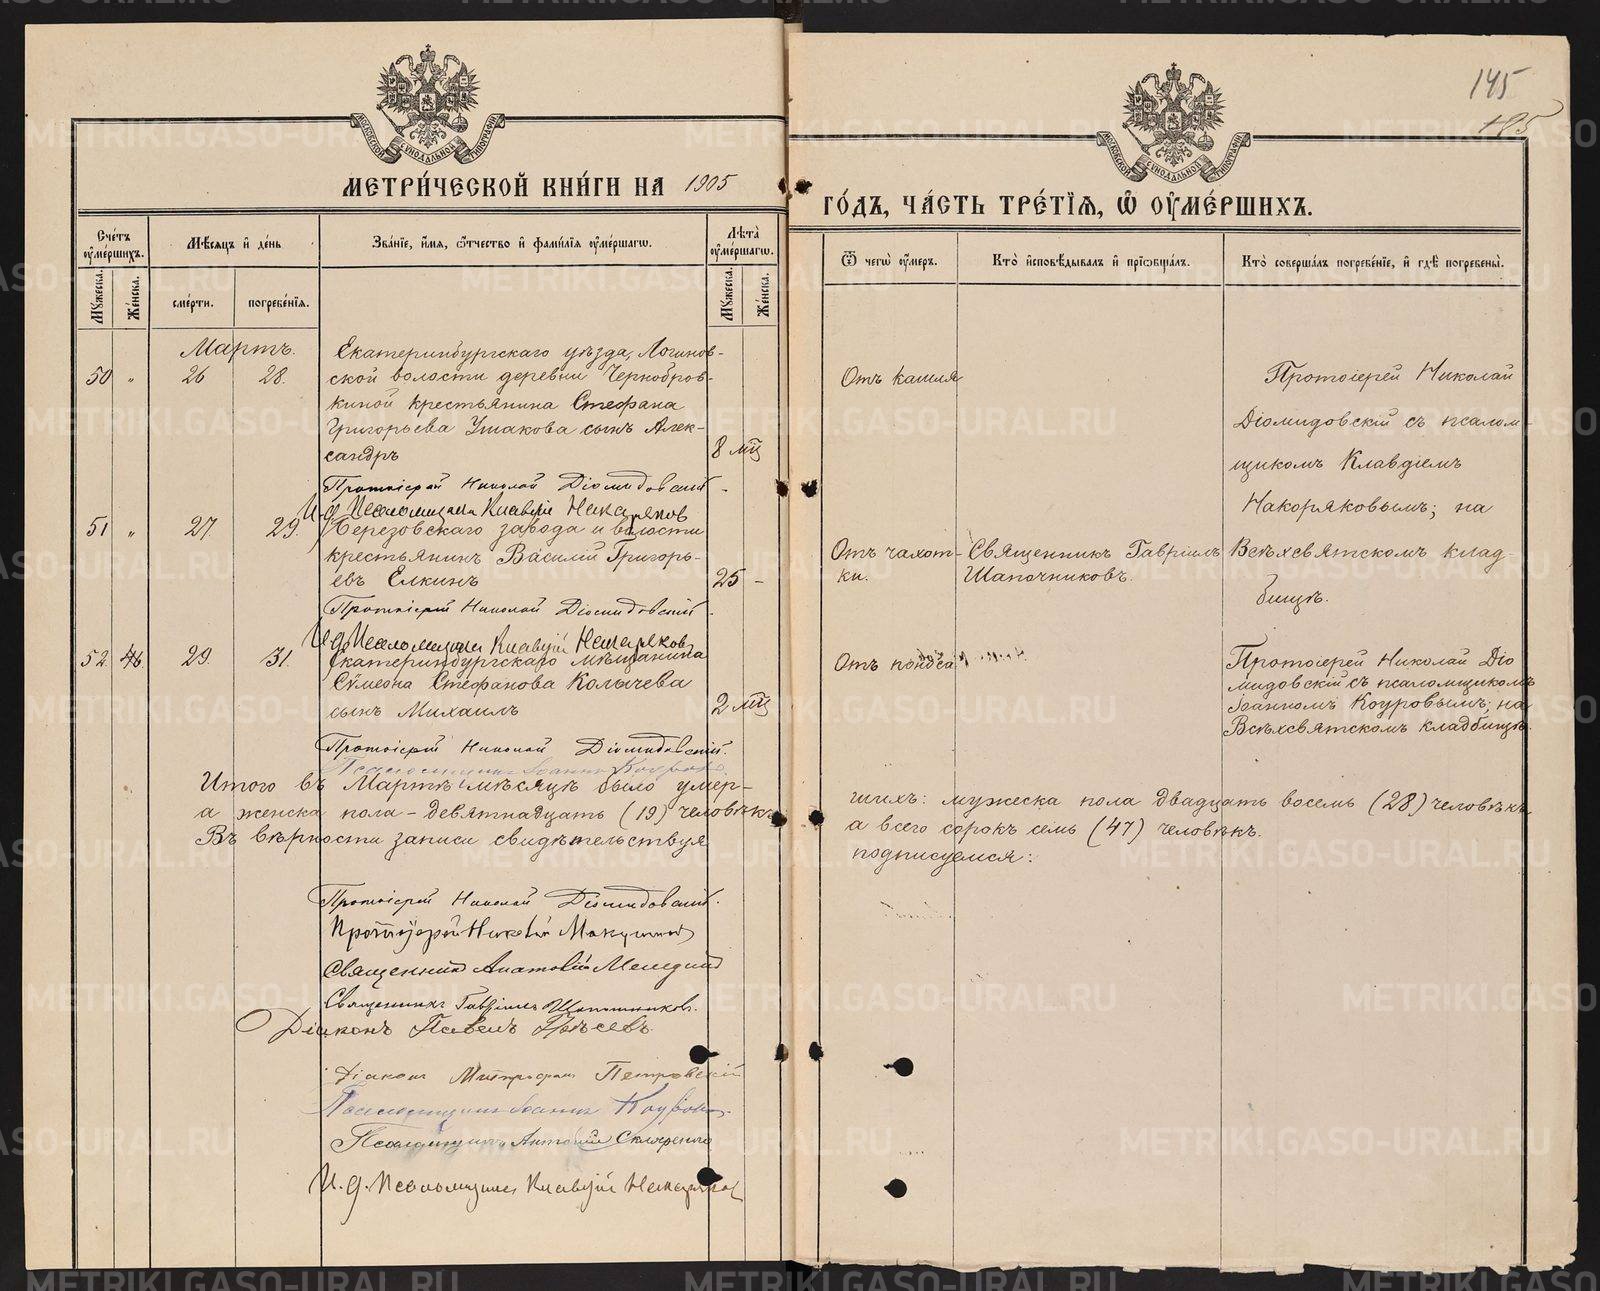 145
195
МОСКОВСКОЙ СУНОДАЛЬНОЙ ТИПОГРАФІИ
МОСКОВСКОЙ СУНОДАЛЬНОЙ ТИПОГРАФІИ
МЕТРИ́ЧЕСКОЙ КНИ́ГИ НА 1905
ГО́ДЪ, ЧА́СТЬ ТРЕ́ТІѦ, Ѽ ОУ҆МЕ́РШИХЪ.
Сче́тъ оу҆ме́ршихъ.
Мꙋ́жеска.
Же́нска.
Мѣ́сѧцъ и҆ де́нь
сме́рти.
погребе́нїѧ.
Зва́нїе, и҆́мѧ, ѻ҆́тчество и҆ фами́лїѧ оу҆ме́ршагѡ.
Лѣ̑та оу҆ме́ршагѡ.
Мꙋ́жеска.
Же́нска.
Ѿ чегѡ̀ оу҆́меръ.
Кто̀ и҆сповѣ́дывалъ и҆ прїѡбща́лъ.
Кто̀ соверша́лъ погребе́нїе, и҆ гдѣ̀ погребены̀.
Мартъ.
50 " 26 28.
Екатеринбургскаго уѣзда, Логинов-
ской волости деревни Чернобров-
киной крестьянина Стефана
Григорьева Ушакова сынъ Алек-
сандръ 8 мц
Отъ кашля
Протоіерей Николай
Діомидовскій съ псалом-
щикомъ Клавдіемъ
Накоряковымъ; на
Всѣхсвятскомъ клад-
бищѣ.
Протоіерей Николай Діомидовскій
И. д. Псаломщика Клавдій Накоряковъ
51 " 27. 29.
Березовскаго завода и волости
крестьянинъ Василій Григорь-
евъ Елкинъ 25 -
Отъ чахот-
ки.
Священникъ Гавріилъ
Шапочниковъ.
Протоіерей Николай Діомидовскій.
И. д. Псаломщика Клавдій Накоряковъ
52. 46. 29. 31.
Екатеринбургскаго мѣщанина
Сѵмеона Стефанова Колычева
сынъ Михаилъ 2 мц
Отъ поноса
Протоіерей Николай Діо
мидовскій съ псаломщикомъ
Іоанномъ Коуровымъ; на
Всѣхсвятскомъ кладбищѣ.
Протоіерей Николай Діомидовскій.
Псаломщикъ Іоаннъ Коуровъ.
Итого въ Мартѣ мѣсяцѣ было умер-
шихъ: мужеска пола двадцать восемь (28) человѣкъ,
а женска пола - девятнадцать (19) человѣкъ
а всего сорокъ семь (47) человѣкъ.
Въ вѣрности записи свидѣтельствуя
подписуемся:
Протоіерей Николай Діомидовскій.
Протоіерей Николай
Священникъ Анатолій
Священникъ Гавріилъ Шапочниковъ.
Діаконъ Павелъ
Діаконъ Митрофанъ Петровскій
Псаломщикъ Іоаннъ Коуровъ.
Псаломщикъ Антоній
И. д. Псаломщика Клавдій Накоряковъ
METRIKI.GASO-URAL.RU